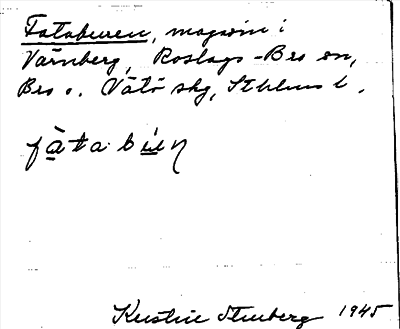 Fataburen, magasin i
Värnberg, Roslags-Bro sn,
Bro o. Vätö skg, Sthlms l.
fàtabúen
Kerstin Stenberg 1945